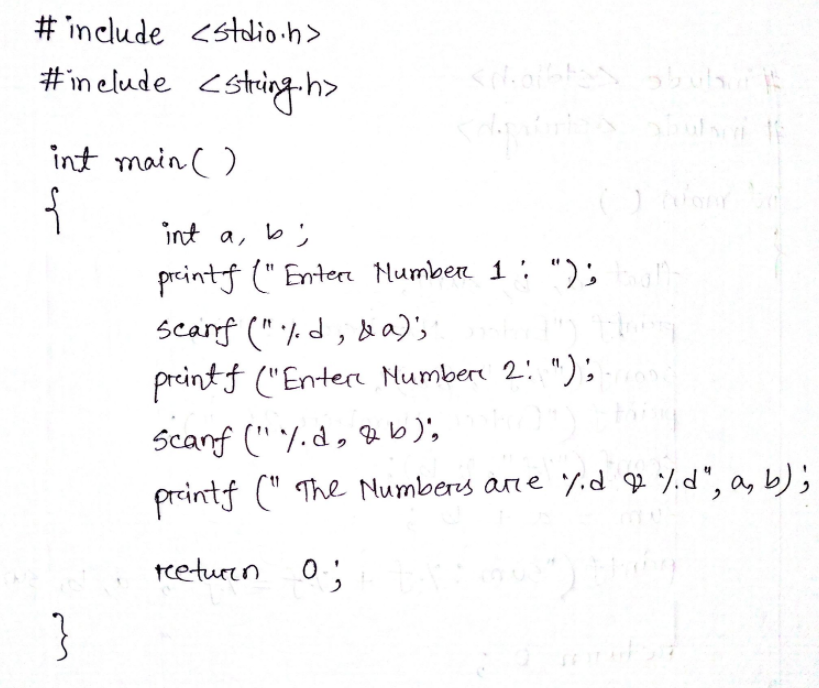 #include <stdio.h>
#include <string.h>
int main( )
{
int a, b;
printf ("Enter Number 1: ");
scanf ("%d, &a);
printf ("Enter Number 2: ");
scanf ("%d, &b);
printf (" The Numbers are %d & %d", a, b);
return 0;
}